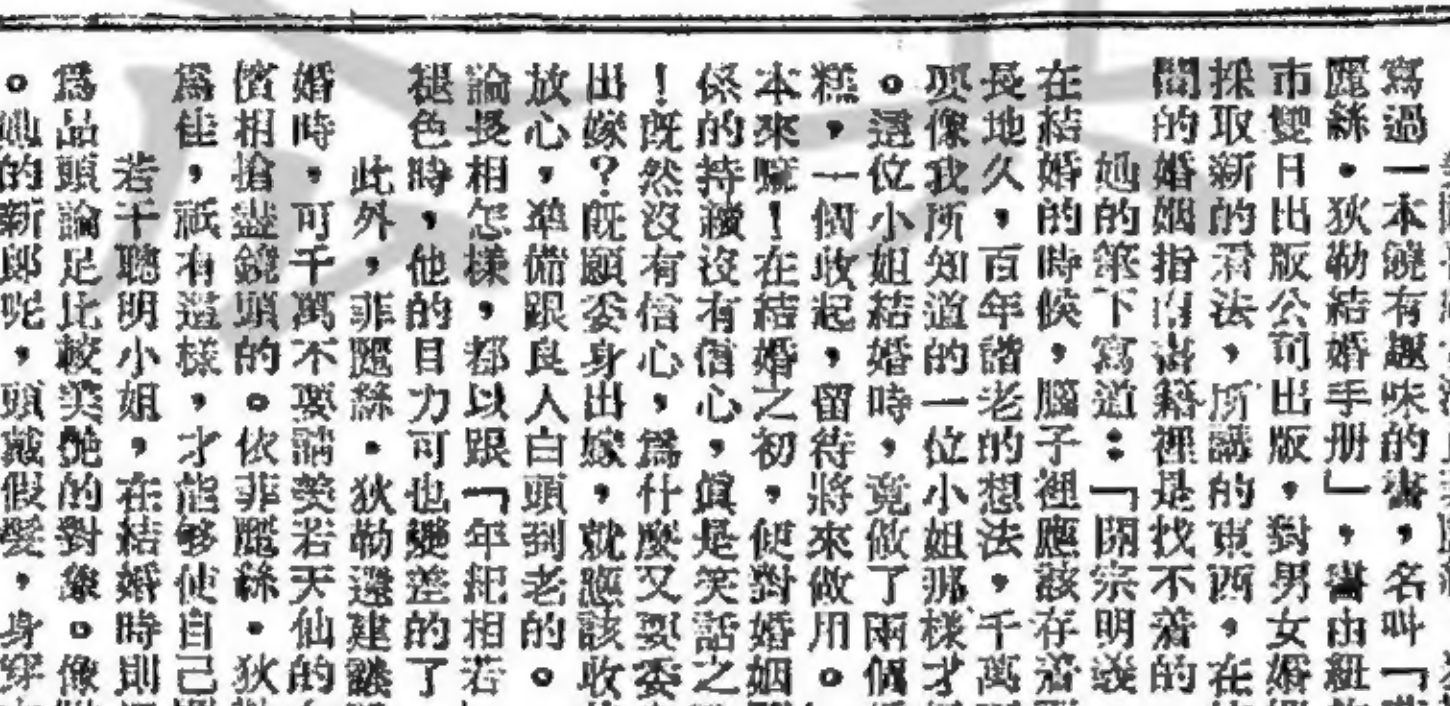 寫過一本饒有趣味的書，名叫「
麗絲・狄勒結婚手册」，書由紐
市雙日出版公司出版，對男女婚
採取新的看法，所講的東西，在
間的婚姻指南書籍裡是找不着的
她的筆下寫道：「開宗明義
在結婚的時候，腦子裡應該存着
長地久，百年諧老的想法，千萬
要像我所知道的一位小姐那樣才
。這位小姐結婚時，竟做了兩個
糕，一個收起，留待將來做用。
本來嘛！在結婚之初，便對婚姻
係的持續沒有信心，眞是笑話之
！既然沒有信心，爲什麼又要委
出嫁？既願委身出嫁，就應該收
放心，準備跟良人白頭到老的。
論長相怎樣，都以跟「年紀相若
褪色時，他的目力可也變差的了
此外，菲麗絲・狄勒還建議
婚時，可千萬不要請美若天仙的
儐相搶盡鏡頭的。依菲麗絲・狄
爲佳，祇有這樣，才能够使自己
若干聰明小姐，在結婚時則
爲品頭論足比較美艷的對象。像
。她的新郎呢，頭戴假髮，身穿